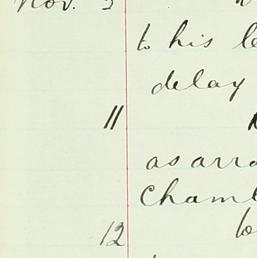 Nov. 3
to his le
delay
11
as arra
Chamb
12